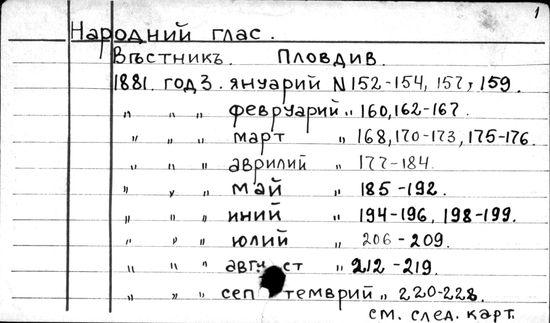 1
Народний глас.
Вѣстникъ. Пловдив.
1881. год 3. януарий N 152-154, 157, 159.
" " " февруарий " 160, 162-167.
" " " март " 168, 170-173, 175-176.
" " " аврилий " 177-184.
" " " май " 185-192.
" " " иний " 194-196, 198-199.
" " " юлий " 206-209.
" " " август " 212-219.
" " " септемврий " 220-228.
см. след. карт.